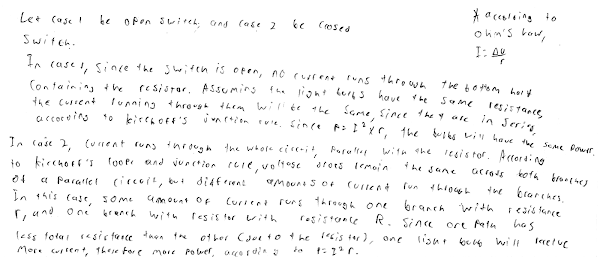 Let case 1 be open switch, and case 2 be closed
switch.
* according to
ohm's law,
I = ΔV/r
In case 1, since the switch is open, no current runs through the bottom half
containing the resistor. Assuming the light bulbs have the same resistance,
the current running through them will be the same, since they are in series,
according to kirchoff's junction rule. Since P = I² x r, the bulbs will have the same power.
In case 2, current runs through the whole circuit, parallel with the resistor. According
to kirchoff's loop and junction rule, voltage does remain the same across both branches
of a parallel circuit, but different amounts of current run through the branches.
In this case, some amount of current runs through one branch with resistance
r, and one branch with resistor with resistance R. Since one path has
less total resistance than the other (due to the resistor), one light bulb will receive
more current, therefore more power, according to P = I²r.